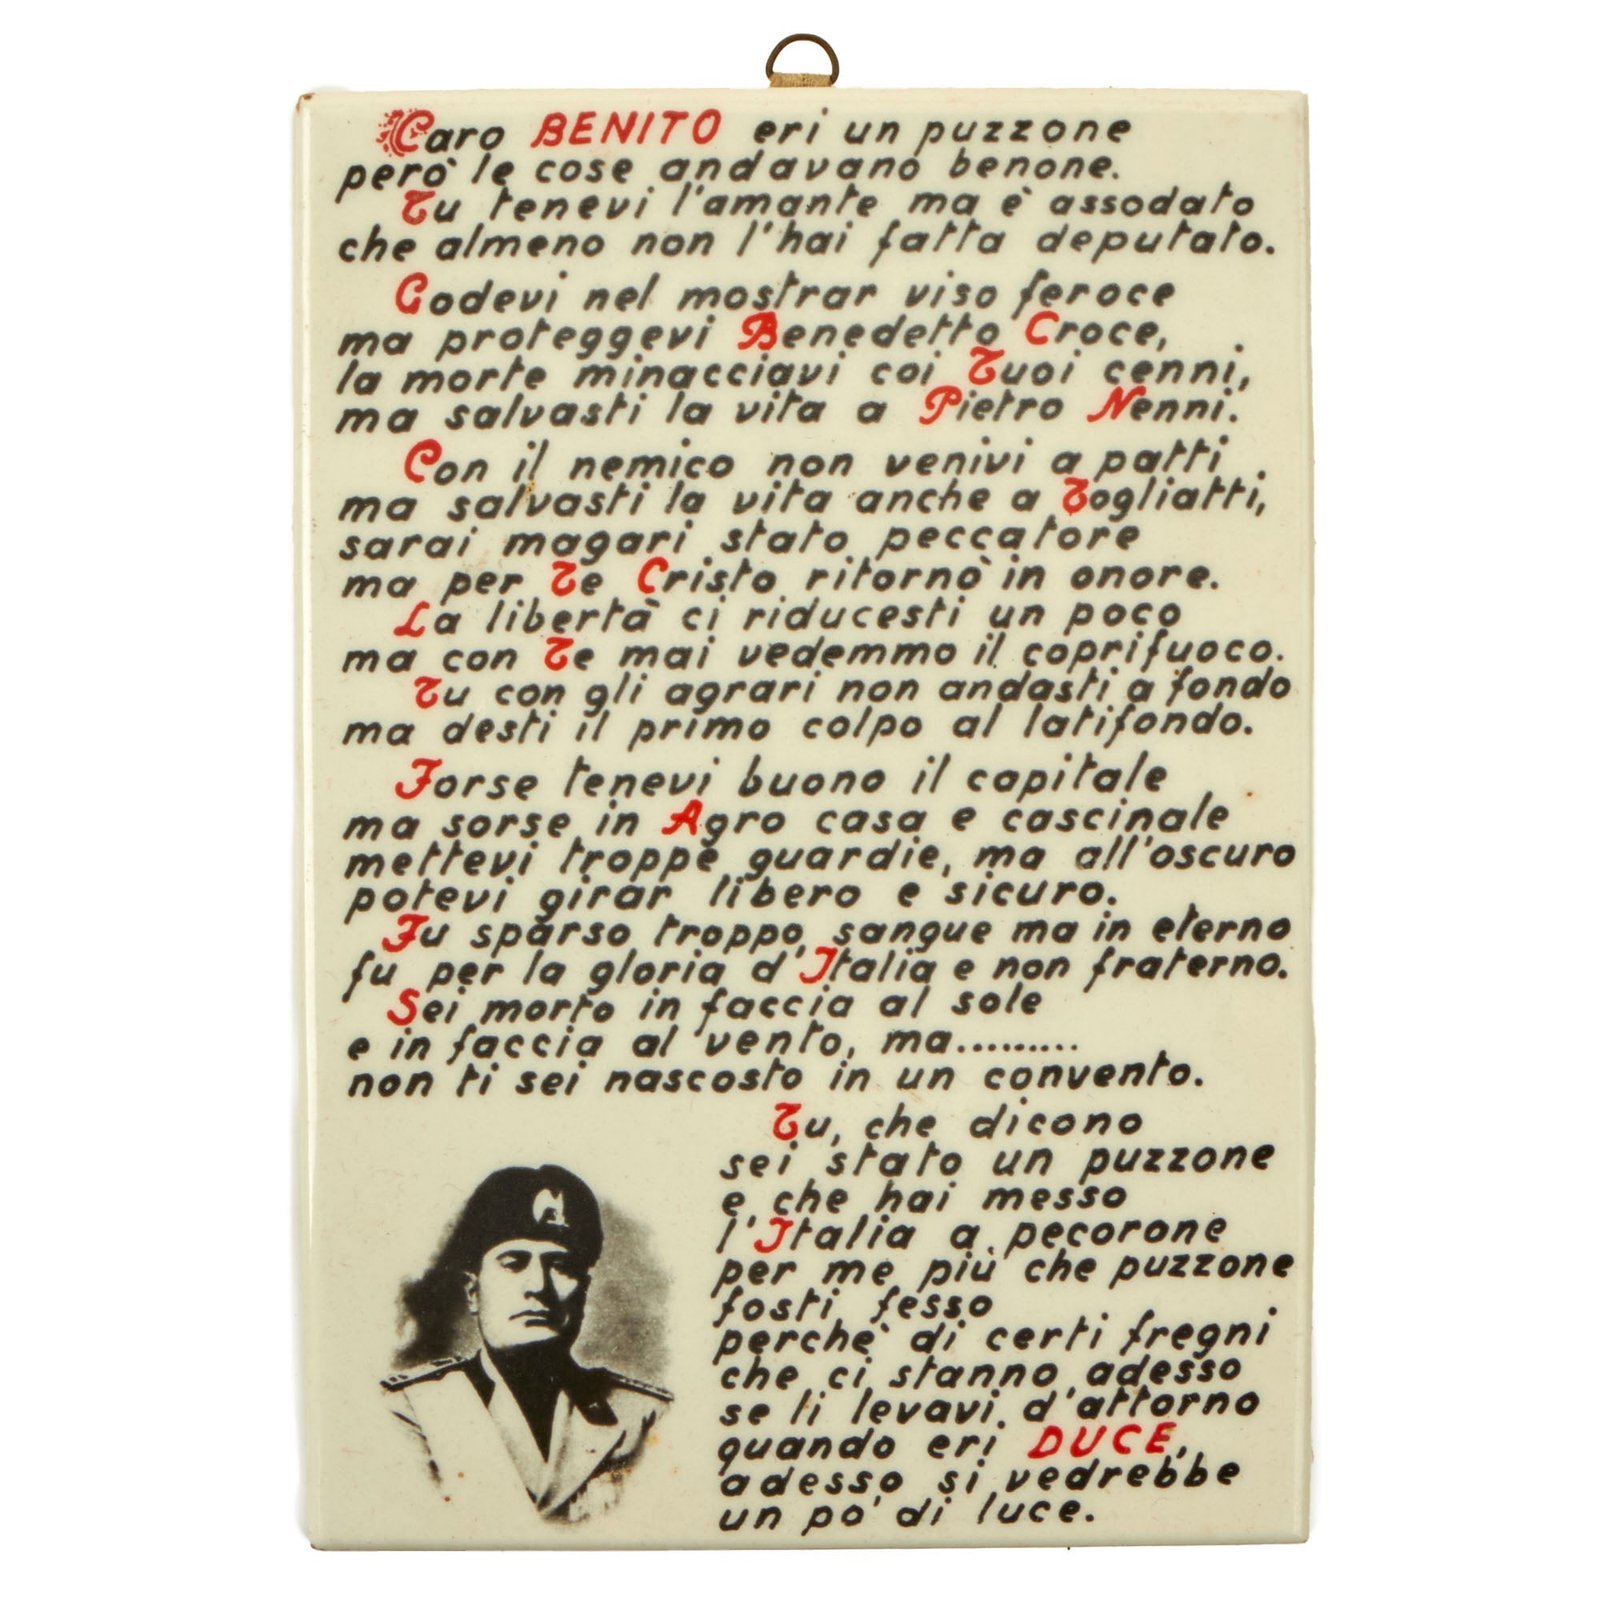 Caro BENITO eri un puzzone
però le cose andavano benone.
Tu tenevi l'amante ma è assodato
che almeno non l'hai fatta deputato.
Godevi nel mostrar viso feroce
ma proteggevi Benedetto Croce,
la morte minacciavi coi Tuoi cenni,
ma salvasti la vita a Pietro Nenni.
Con il nemico non venivi a patti
ma salvasti la vita anche a Togliatti,
sarai magari stato peccatore
ma per Te Cristo ritornò in onore.
La libertà ci riducesti un poco
ma con Te mai vedemmo il coprifuoco.
Tu con gli agrari non andasti a fondo
ma desti il primo colpo al latifondo.
Forse tenevi buono il capitale
ma sorse in Agro casa e cascinale
mettevi troppe guardie, ma all'oscuro
potevi girar libero e sicuro.
Fu sparso troppo sangue ma in eterno
fu per la gloria d'Italia e non fraterno.
Sei morto in faccia al sole
e in faccia al vento, ma.........
non ti sei nascosto in un convento.
Tu, che dicono
sei stato un puzzone
e che hai messo
l'Italia a pecorone
per me più che puzzone
fosti fesso
perchè di certi fregni
che ci stanno adesso
se li levavi d'attorno
quando eri DUCE,
adesso si vedrebbe
un pò di luce.